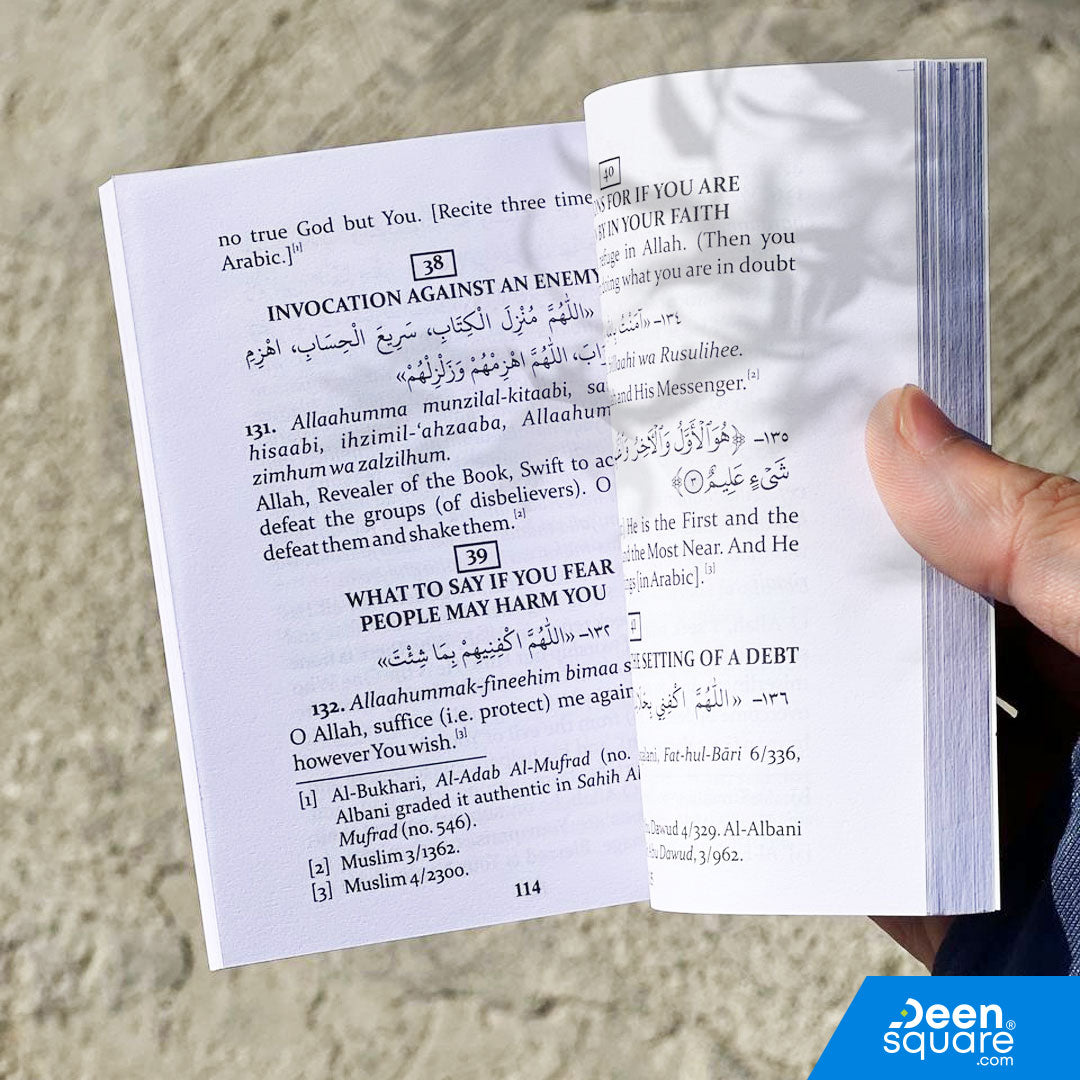 no true God but You. [Recite three time
Arabic.][1]
38
INVOCATION AGAINST AN ENEMY
«اللَّهُمَّ مُنْزِلَ الْكِتَابِ، سَرِيعَ الْحِسَابِ، اهْزِمِ
اللَّهُمَّ اهْزِمْهُمْ وَزَلْزِلْهُمْ»
131. Allaahumma munzilal-kitaabi, sa
hisaabi, ihzimil-‘ahzaaba, Allaahum
zimhum wa zalzilhum.
Allah, Revealer of the Book, Swift to ac
defeat the groups (of disbelievers). O
defeat them and shake them.[2]
39
WHAT TO SAY IF YOU FEAR
PEOPLE MAY HARM YOU
١٣٢- «اللَّهُمَّ اكْفِنِيهِمْ بِمَا شِئْتَ»
132. Allaahummak-fineehim bimaa s
O Allah, suffice (i.e. protect) me again
however You wish.[3]
[1] Al-Bukhari, Al-Adab Al-Mufrad (no.
Albani graded it authentic in Sahih Al
Mufrad (no. 546).
[2] Muslim 3/1362.
[3] Muslim 4/2300.
114
40
NS FOR IF YOU ARE
BY IN YOUR FAITH
efuge in Allah. (Then you
oing what you are in doubt
١٣٤- «آمَنْتُ
llaahi wa Rusulihee.
and His Messenger.[2]
١٣٥- ﴿هُوَ ٱلْأَوَّلُ وَٱلْـَٔاخِرُ
شَىْءٍ عَلِيمٌ ٣﴾
He is the First and the
d the Most Near. And He
gs [in Arabic].[3]
SETTING OF A DEBT
١٣٦- «اللَّهُمَّ اكْفِنِي
alani, Fat-hul-Bāri 6/336,
Dawud 4/329. Al-Albani
Dawud, 3/962.
Deen
square®
.com